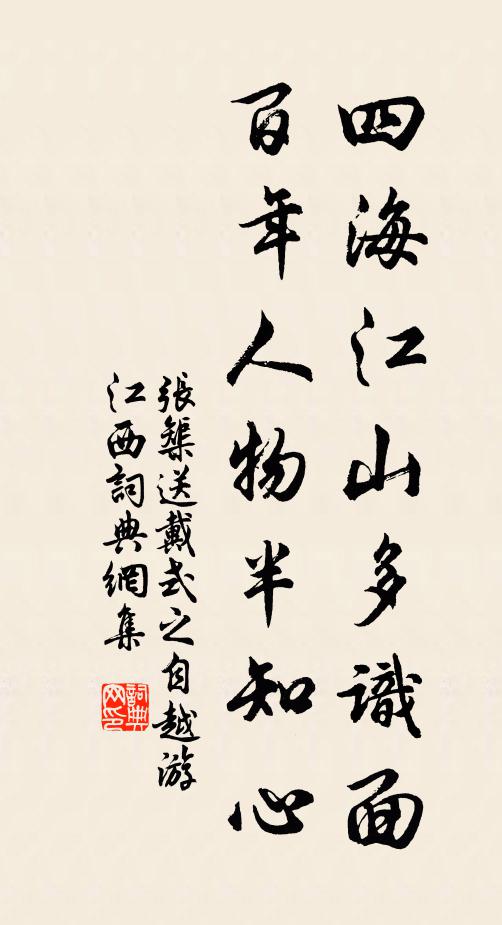 四海江山多識面
百年人物半知心
張榘送戴式之自越游
江西詞典網集
詞典網印